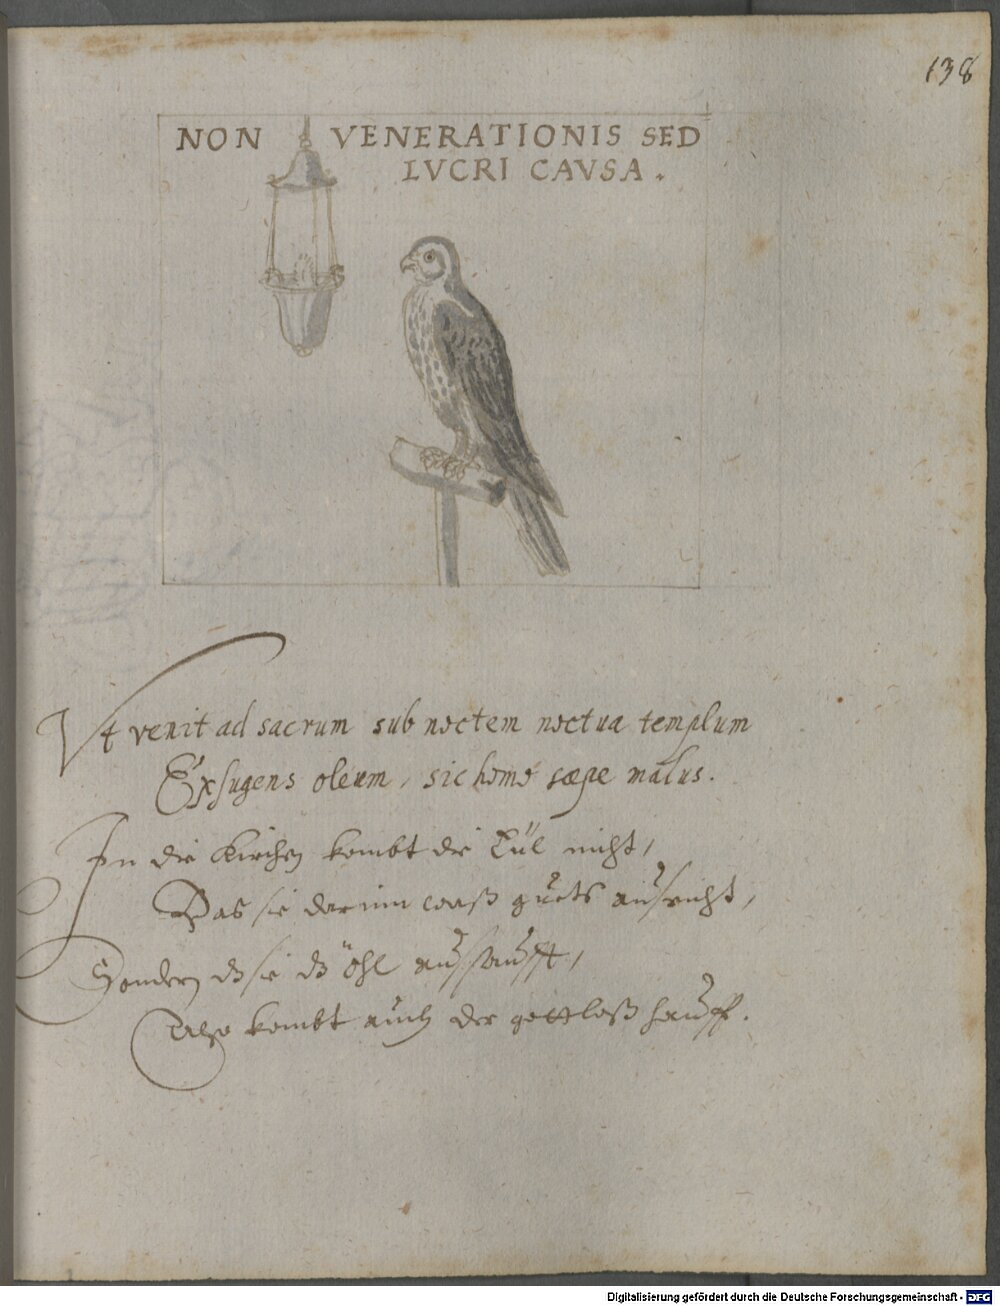 138
NON VENERATIONIS SED
LVCRI CAVSA.
Vt venit ad sacrum sub noctem noctua templum
Exsugens oleum, sic homo sæpe malus.
In die Kirchen kombt die Eül nicht,
Das sie darinn waß guets ausricht,
Sondern dz sie dz öhl aussaufft,
Also kombt auch der gottloß hauff.
Digitalisierung gefördert durch die Deutsche Forschungsgemeinschaft - DFG